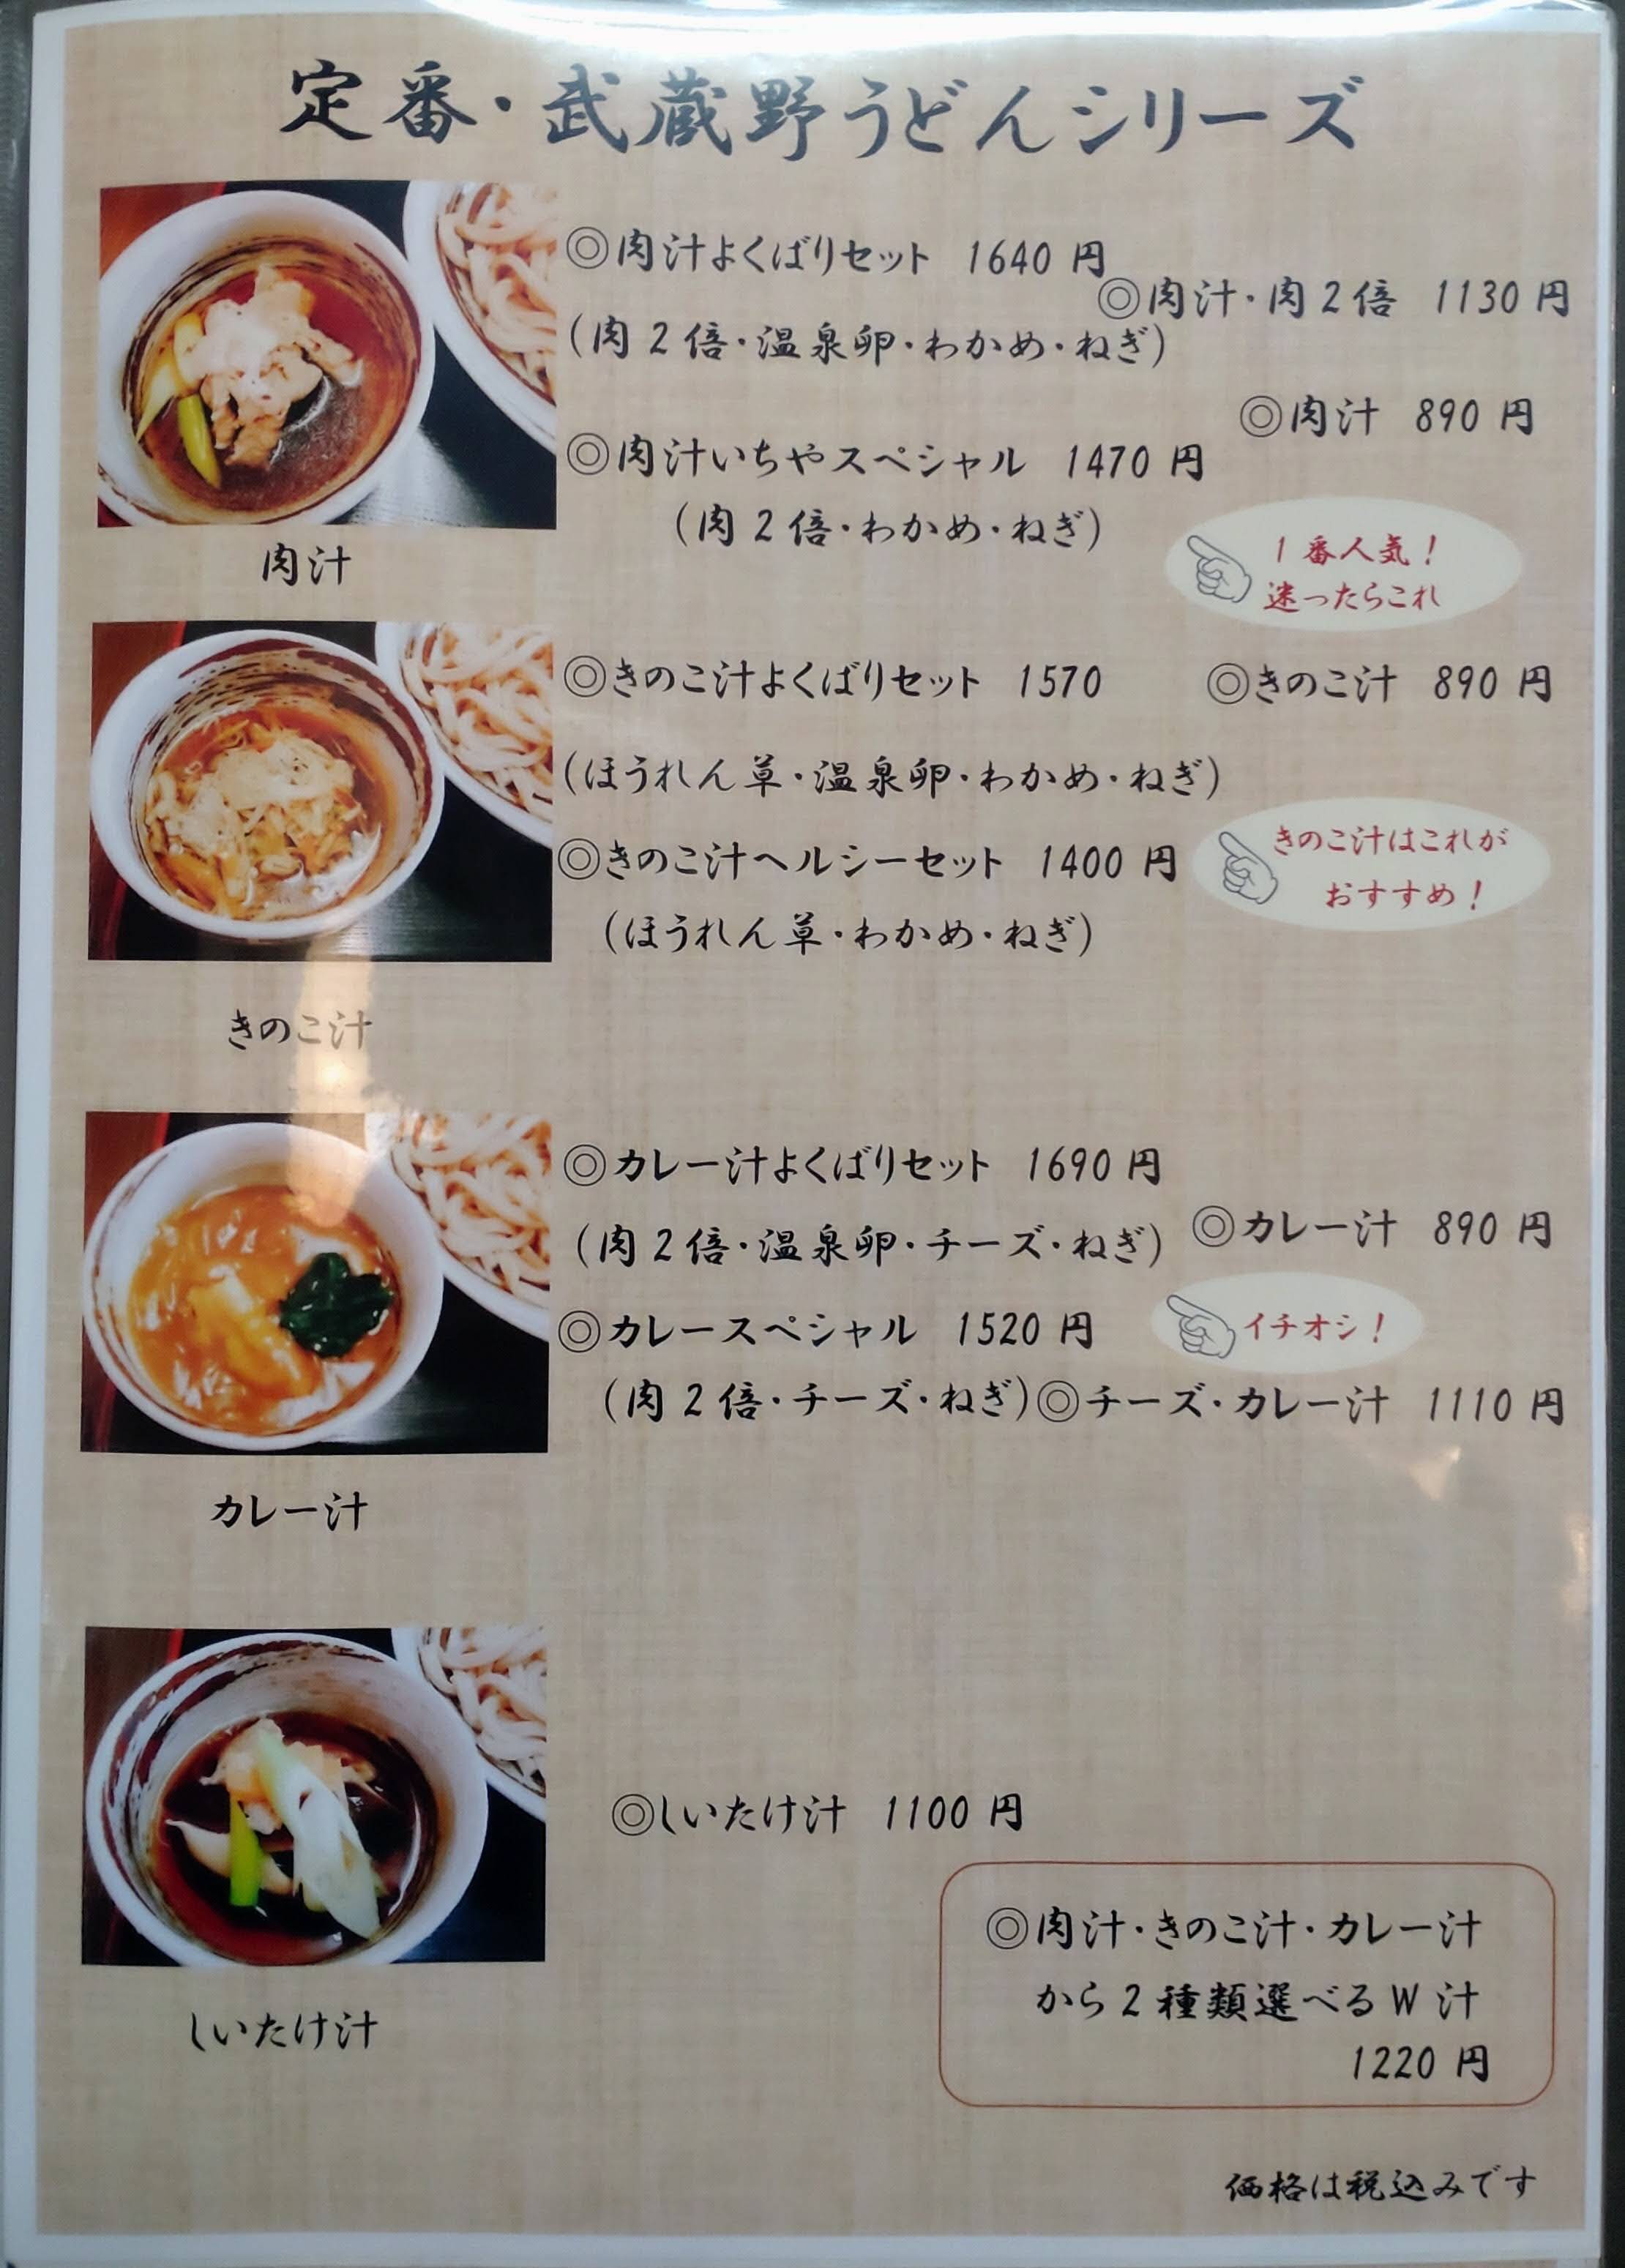 定番・武蔵野うどんシリーズ
◎肉汁よくばりセット 1640 円
◎肉汁・肉2倍 1130 円
(肉2倍・温泉卵・わかめ・ねぎ)
◎肉汁 890 円
◎肉汁いちやスペシャル 1470 円
(肉2倍・わかめ・ねぎ)
1番人気!
迷ったらこれ
肉汁
◎きのこ汁よくばりセット 1570
◎きのこ汁 890 円
(ほうれん草・温泉卵・わかめ・ねぎ)
◎きのこ汁ヘルシーセット 1400 円
きのこ汁はこれが
おすすめ!
(ほうれん草・わかめ・ねぎ)
きのこ汁
◎カレー汁よくばりセット 1690 円
◎カレー汁 890 円
(肉2倍・温泉卵・チーズ・ねぎ)
◎カレースペシャル 1520 円
イチオシ!
(肉2倍・チーズ・ねぎ)
◎チーズ・カレー汁 1110 円
カレー汁
◎しいたけ汁 1100 円
しいたけ汁
◎肉汁・きのこ汁・カレー汁
から2種類選べるW汁
1220 円
価格は税込みです